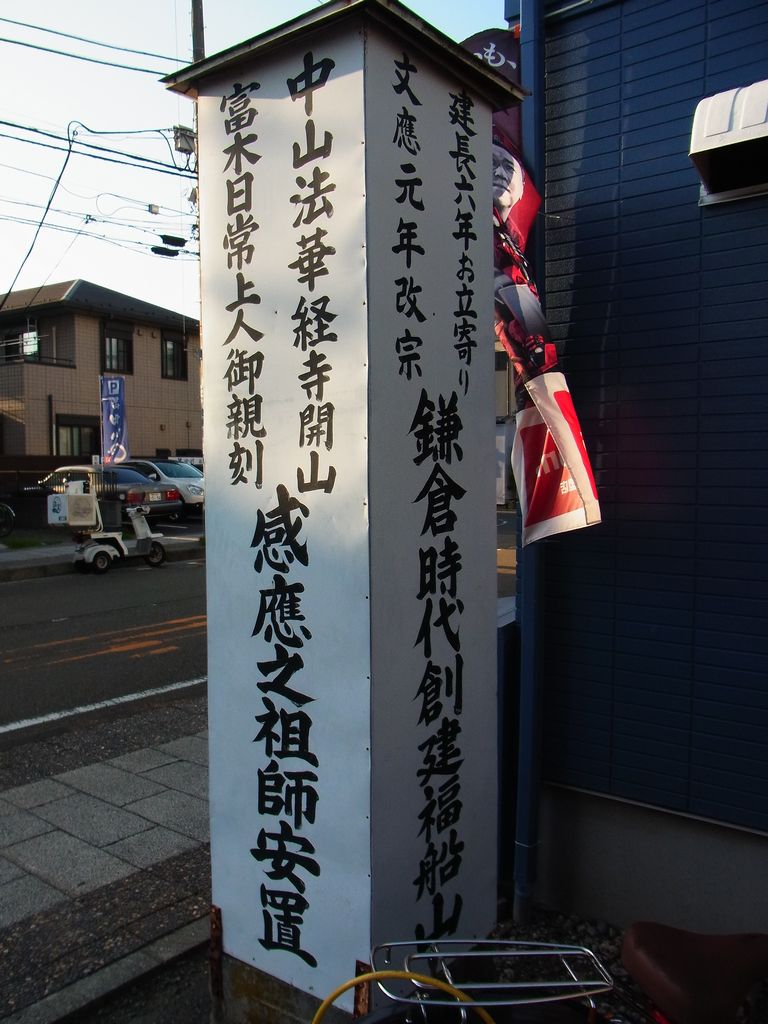 建長六年お立寄り
文應元年改宗
鎌倉時代創建福船山
中山法華経寺開山
富木日常上人御親刻
感應之祖師安置
P